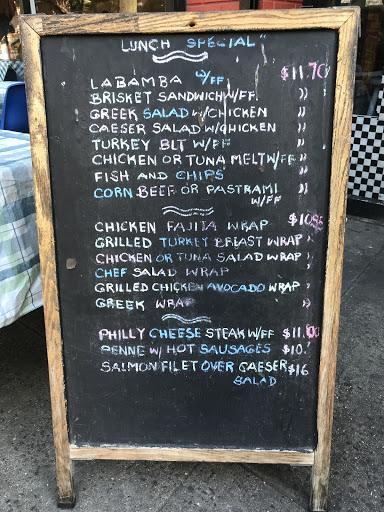 LUNCH SPECIAL"
LABAMBA W/FF $11.70
BRISKET SANDWICH W/FF. "
GREEK SALAD W/CHICKEN "
CAESER SALAD W/CHICKEN "
TURKEY BLT W/FF "
CHICKEN OR TUNA MELT W/FF "
FISH AND CHIPS "
CORN BEEF OR PASTRAMI "
W/FF
CHICKEN FAJITA WRAP $10.95
GRILLED TURKEY BREAST WRAP "
CHICKEN OR TUNA SALAD WRAP "
CHEF SALAD WRAP "
GRILLED CHICKEN AVOCADO WRAP "
GREEK WRAP "
PHILLY CHEESE STEAK W/FF $11.00
PENNE W/ HOT SAUSAGES $10.
SALMON FILET OVER CAESER $16
SALAD